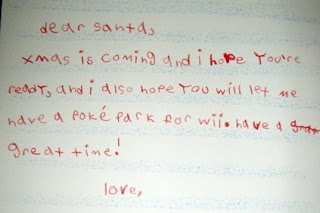 dear santa,
xmas is coming and i hope You're
reddY, and i also hope YOU will let me
have a poké park for wii. have a
great time!
love,